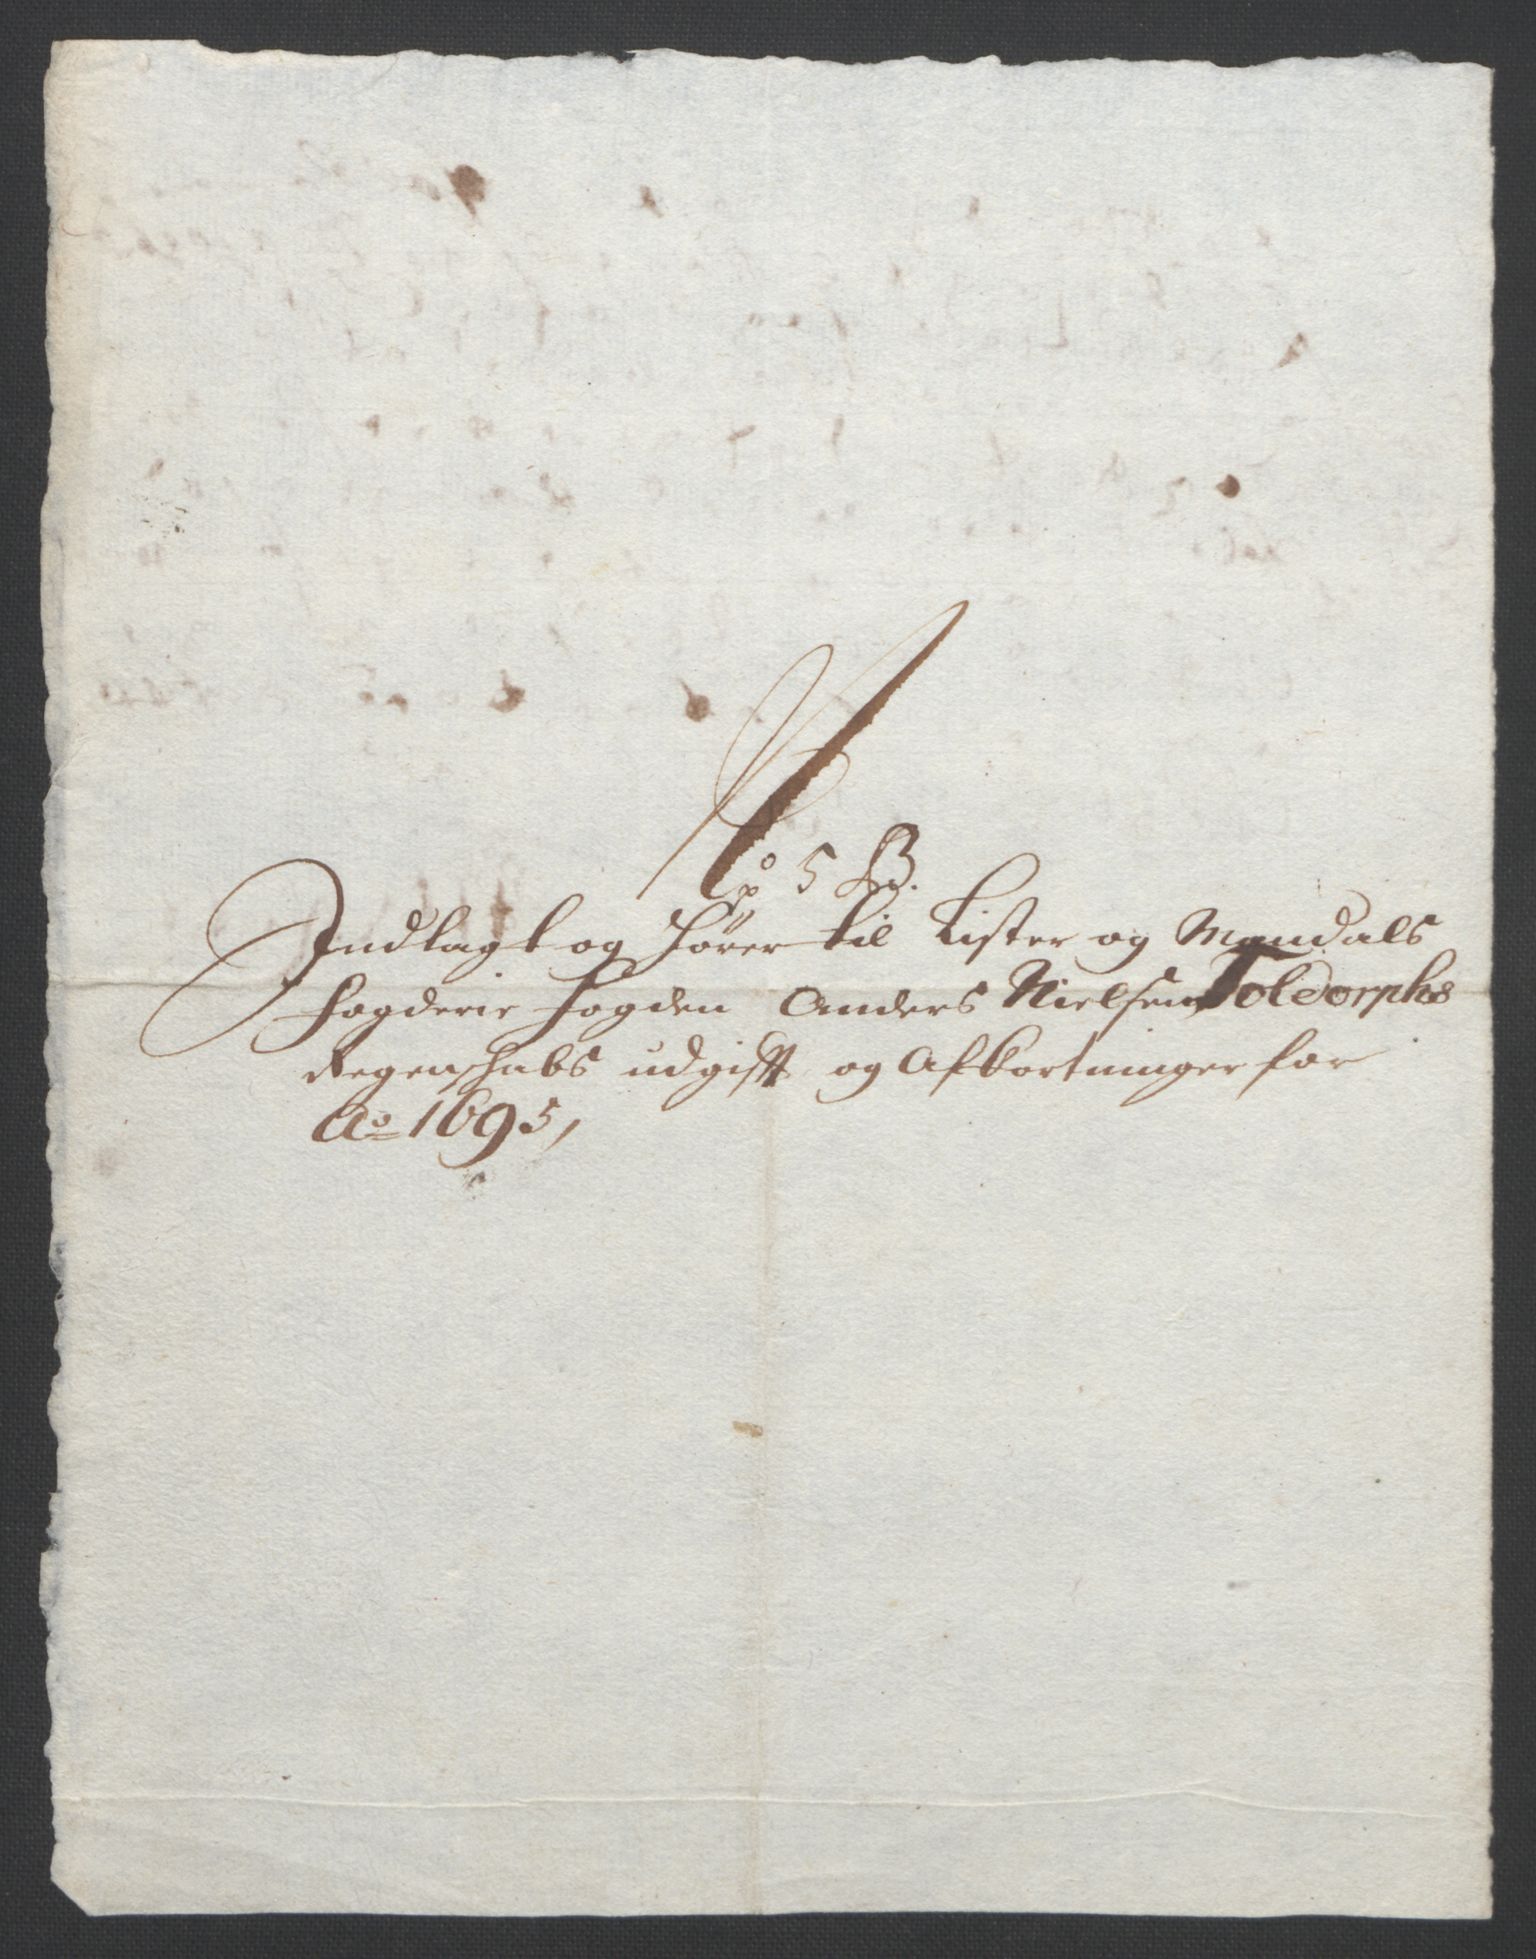 No 5 B.
Indlagt og hører til Lister og Mandals
fogderie fogden Anders Nielsen Toldorphs
Regenschabs udgifft og Afkortninger for
Ao 1695,